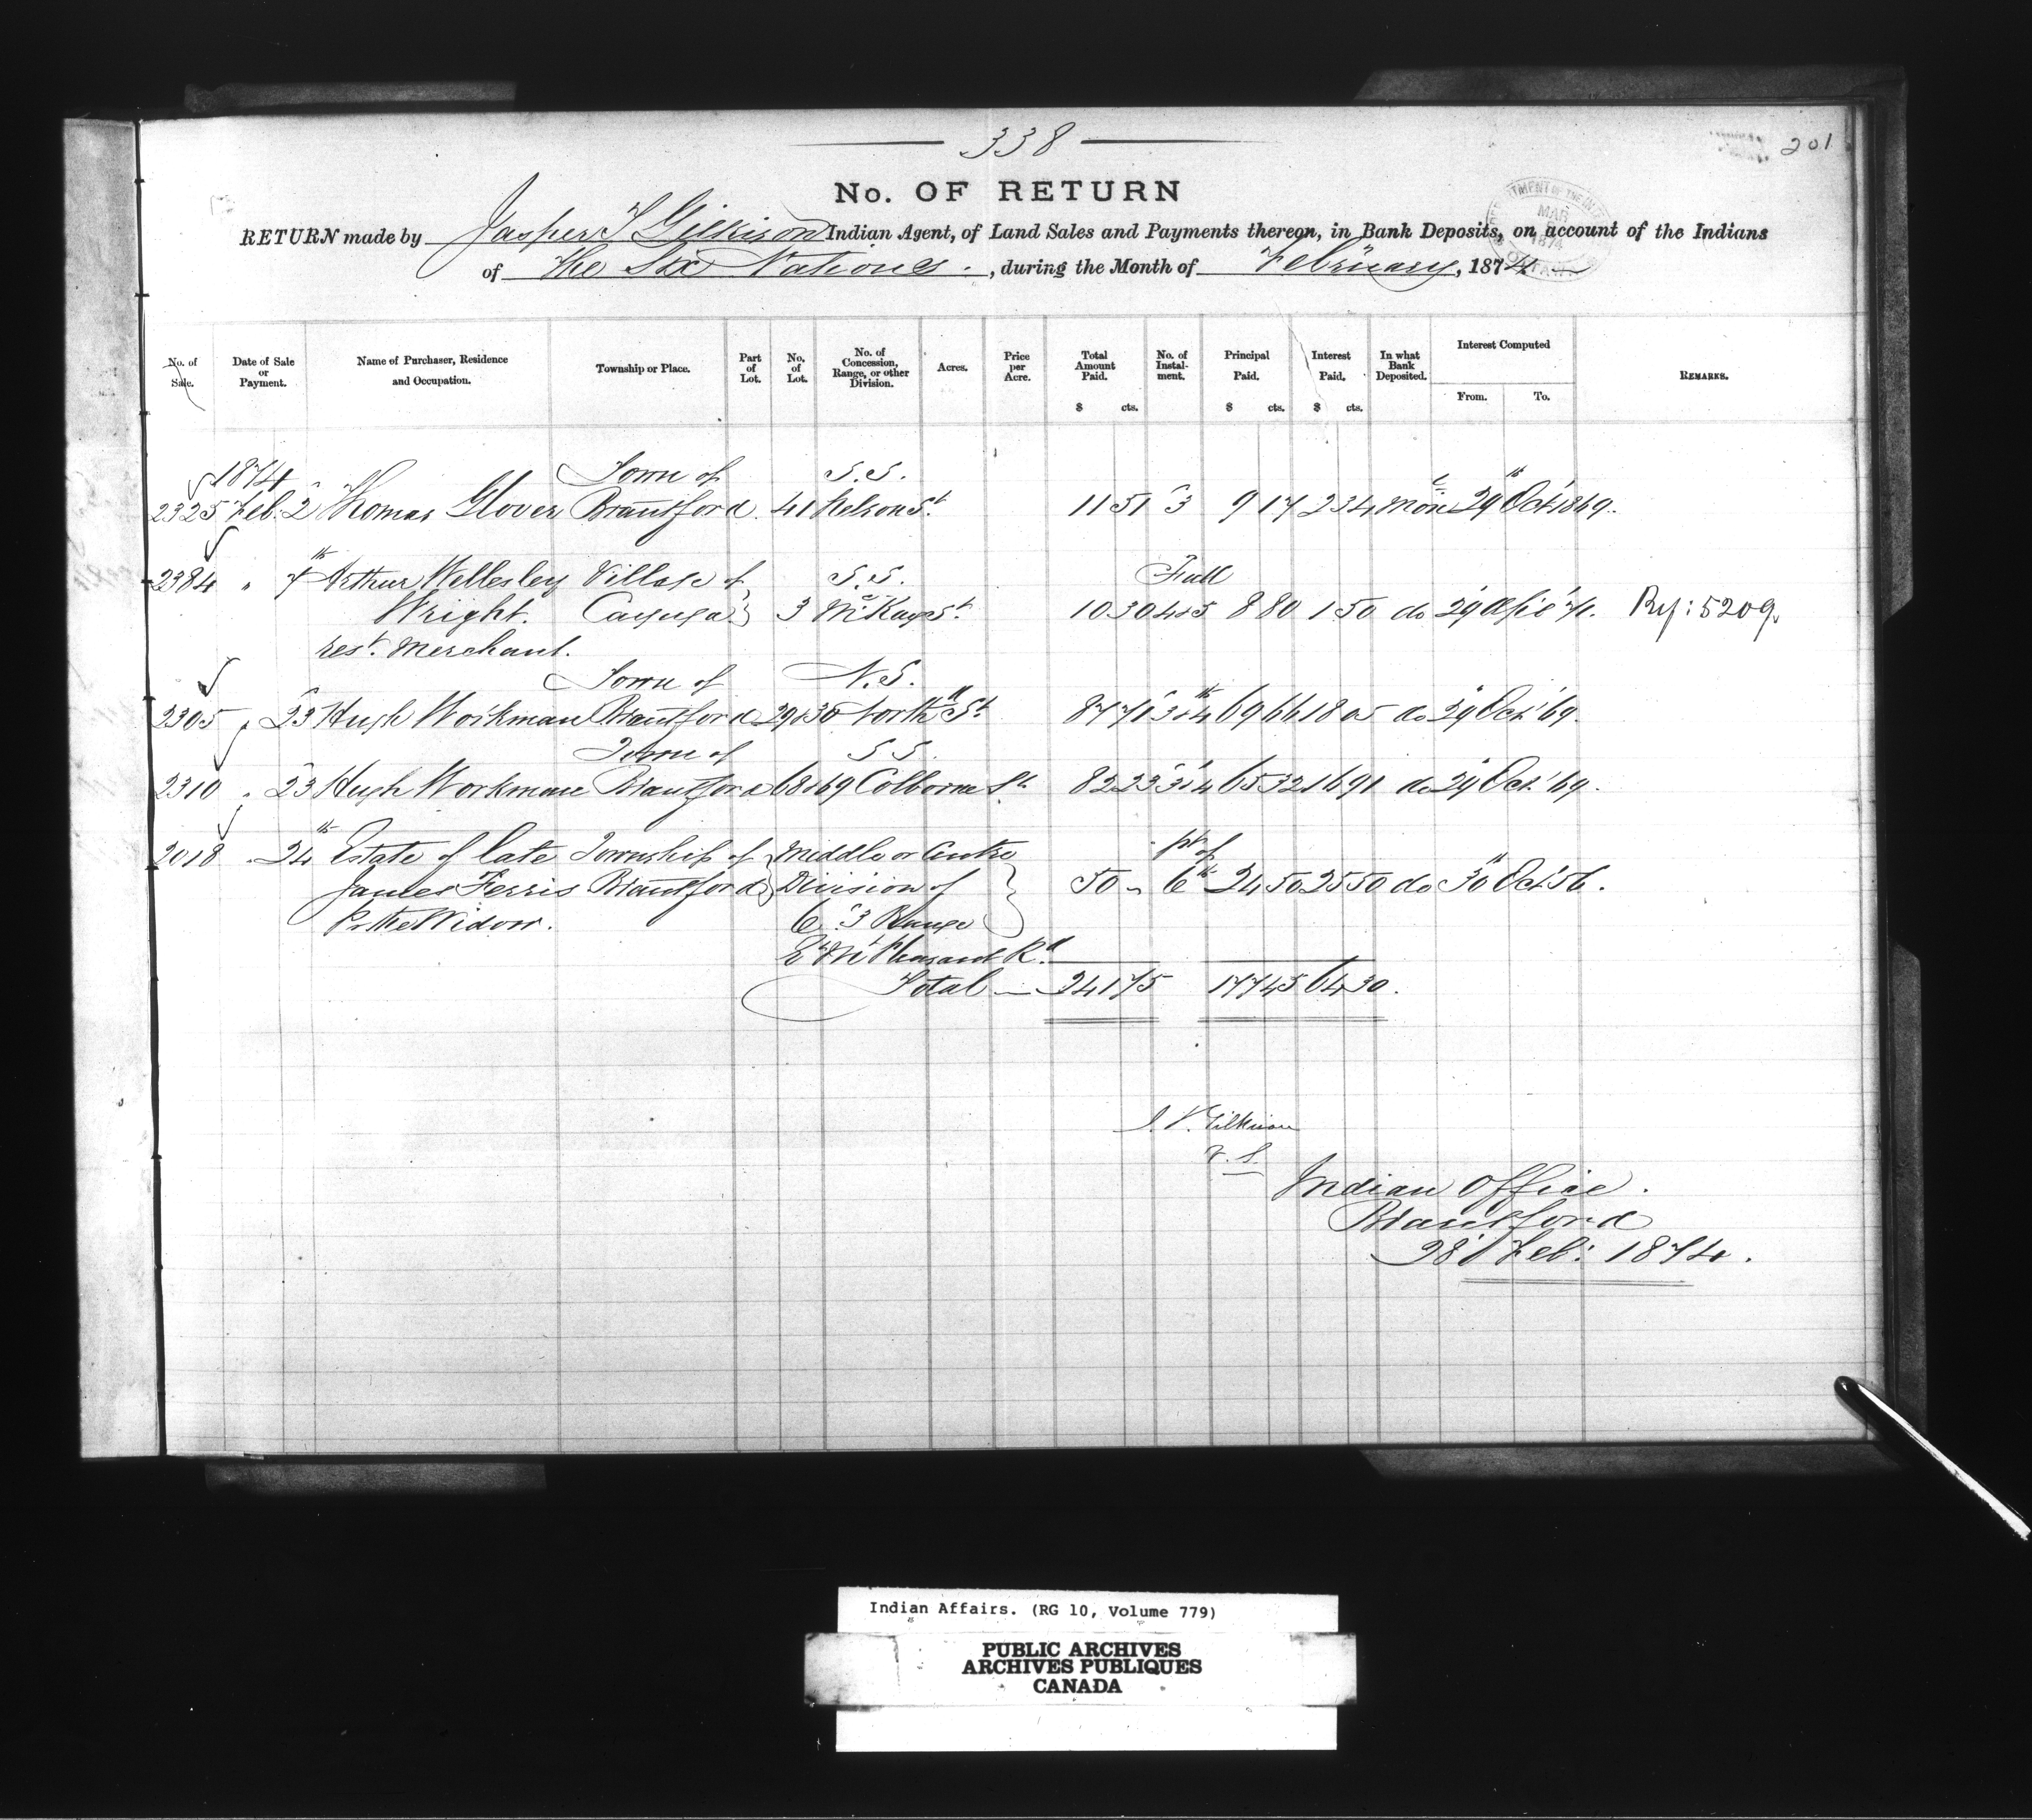 338
201
No. OF RETURN
RETURN made by Jasper T Gilkison Indian Agent, of Land Sales and Payments thereon, in Bank Deposits, on account of the Indians
of the Six Nations, during the Month of February, 1874
No. of Sale. Date of Sale or Payment. Name of Purchaser, Residence and Occupation. Township or Place. Part of Lot. No. of Lot. No. of Concession, Range, or other Division. Acres. Price per Acre. Total Amount Paid. $ cts. No. of Instalment. Principal Paid. $ cts. Interest Paid. $ cts. In what Bank Deposited. Interest Computed From. To. REMARKS.
1874 Town of S.S.
2325 Feb. 2 Thomas Glover Brantford 41 Nelson St. 11 51 3 9 17 2 34 29 Oct 1869.
2384 " 7th Arthur Wellesley Village of S.S. Full
Wright. Cayuga } 3 McKay St. 10 30 4&5 8 80 1 50 do 29 71. Ref: 5209
rest. Merchant.
Town of N.S.
2305 " 23 Hugh Workman Brantford 29&30 North St 87 71 3&4 69 66 18 05 do 29 Oct '69.
Town of S S.
2310 " 23 Hugh Workman Brantford 68&69 Colborne St. 82 23 3&4 65 32 16 91 do 29 Oct '69.
2018 " 24th Estate of late Township of Middle or Centre pt of
James Ferris Brantford Division of 50 - 6th 24 50 25 50 do 30 Oct 56.
Pr the Widow. 6 "3 Range
E Mt Pleasant Rd.
Total — 241 75 177 45 64 30.
J. T. Gilkison
Indian Office.
Brantford
28 Feb: 1874.
Indian Affairs. (RG 10, Volume 779)
PUBLIC ARCHIVES
ARCHIVES PUBLIQUES
CANADA